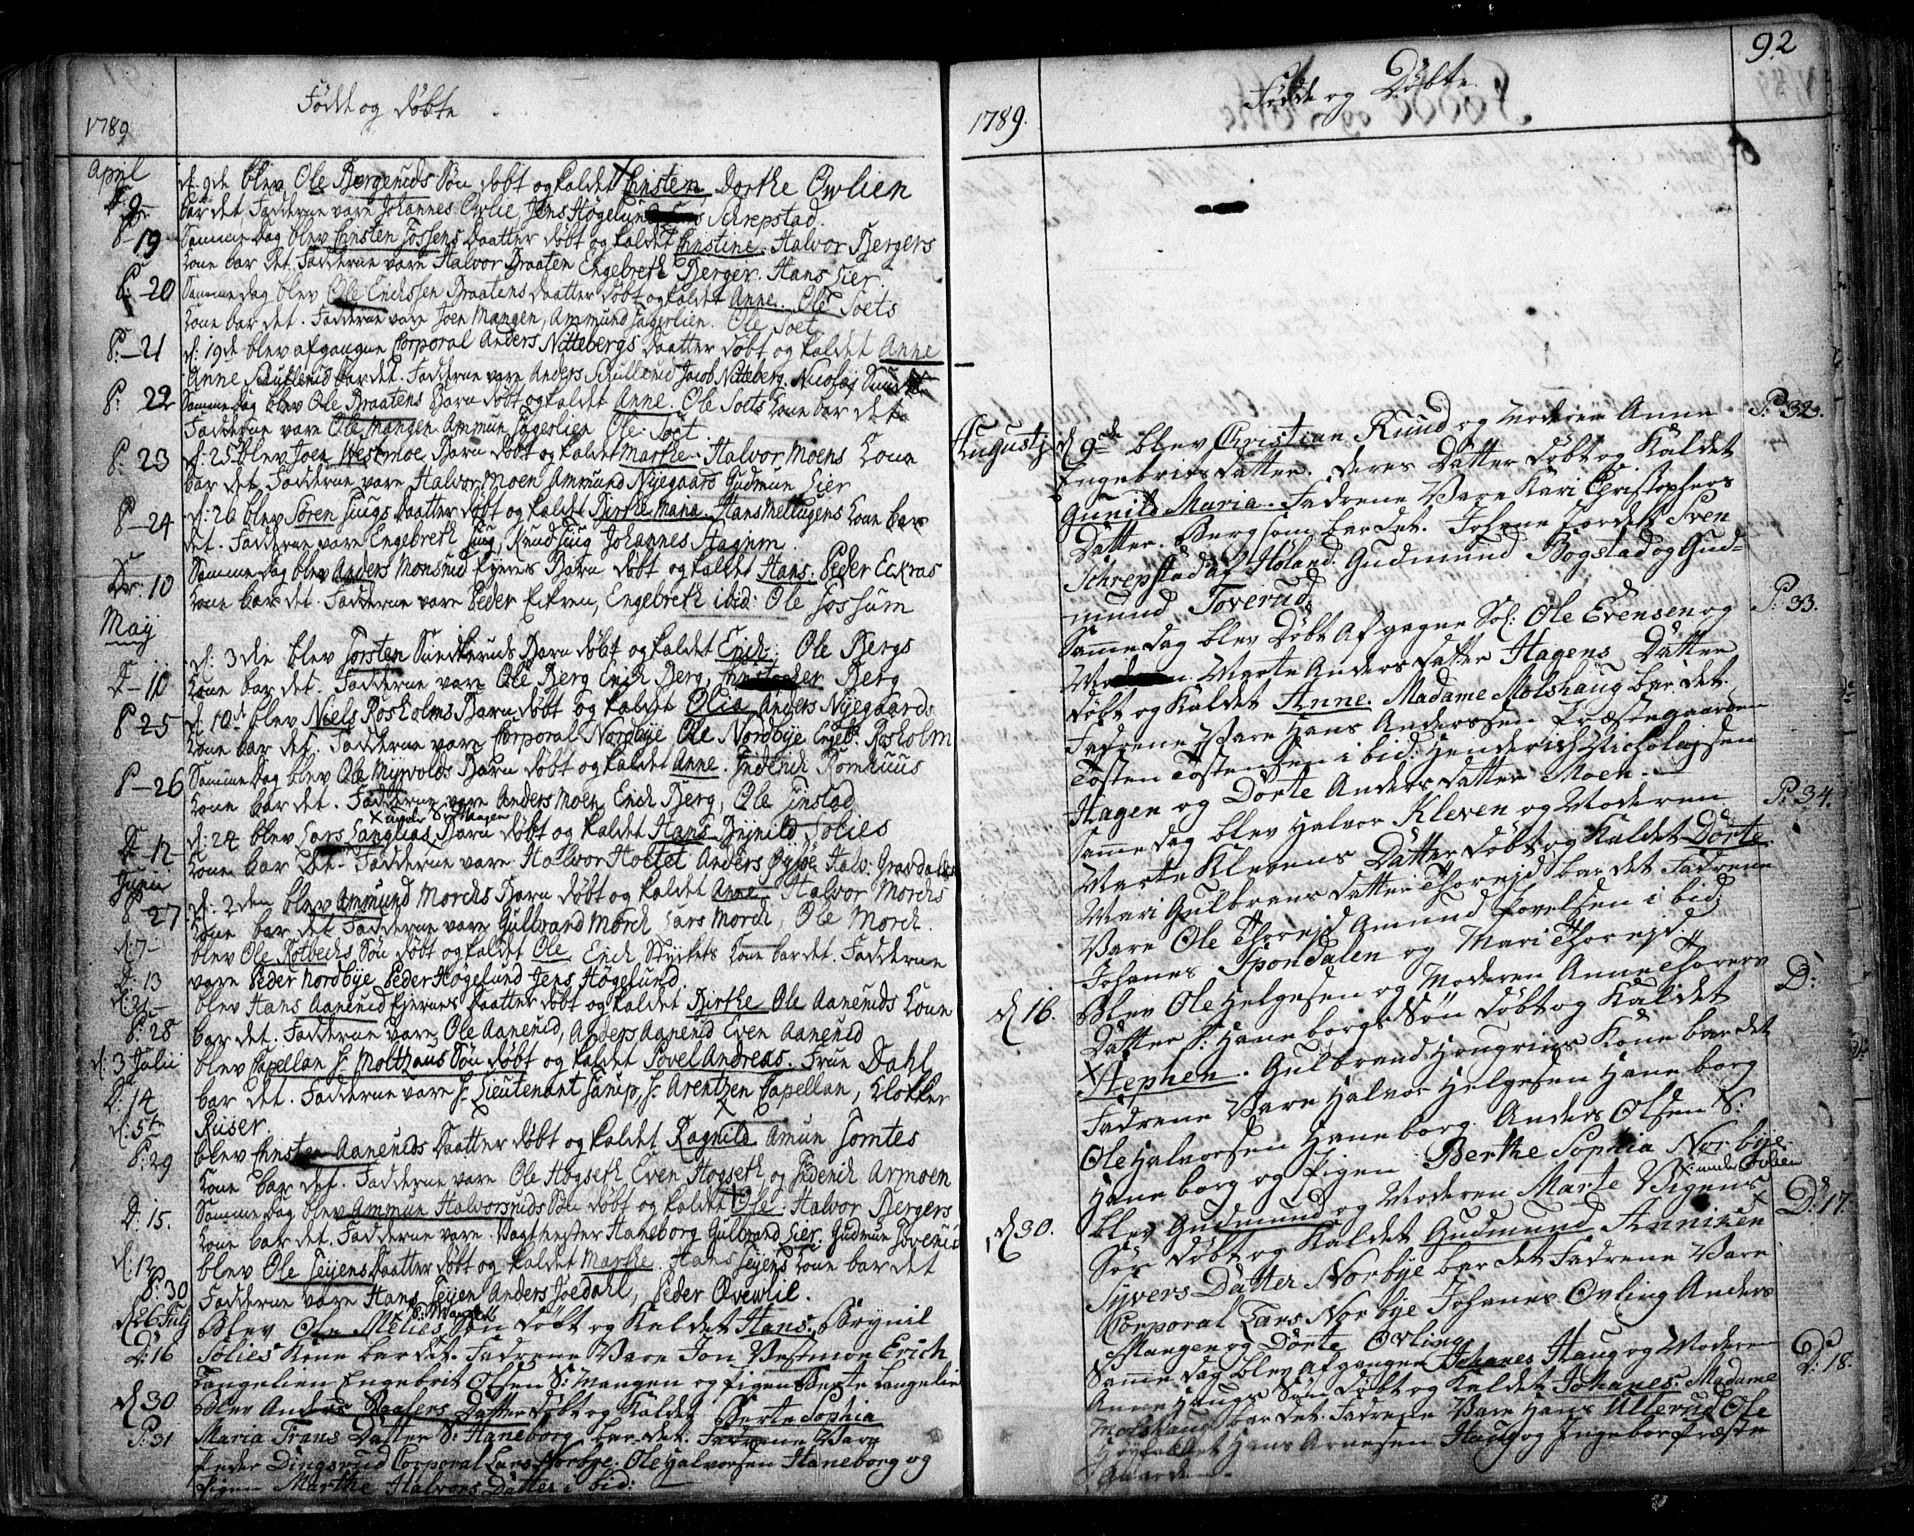 1789
Født og døbte
April
d: 9de blev Ole Bergeruds Søn døbt og kaldet Christen, Dorthe Ovlien
9
bar det. Fadderne vare Johannes Ovlie, Jens Høgelund Schrepstad
P 19
Samme Dag blev Christen Fossens Daatter døbt og kaldet Christine. Halvor Bergers
Kone bar det. Fadderne vare Halvor Braaten Engebreth Berger. Hans Lier
P: 20
Samme dag blev Ole Erichssen Braatens daatter døbt og kaldet Anne. Ole Soets
Kone bar det. Fadderne vare Joen Mangen, Ammund Jagerlien. Ole Soet
P: 21
d: 19de blev afgangne Corporal Anders Nittebergs Daatter døbt og kaldet Anne
Anne Skullerud bar det. Fadderne vare Anders Skullerud Jacob Nitteberg. Nicolaj
P: 22
Samme dag blev Ole Braatens Barn døbt og kaldet Anne. Ole Soets Kone bar det
Fadderne vare Ole Mangen Ammun Jagerlien Ole Soet
P: 23
d: 25 blev Joen Westmoe Barn døbt og kaldet Marthe. Halvor Moens Kone
bar det. Fadderne vare Halvor Moen Ammund Nyegaard Gudmun Lier
P 24
d: 26 blev Søren Juugs Daatter døbt og kaldet Birthe Maria. Hans Mellugens Kone bar
det. Fadderne vare Engebreth Juug, Knud Juug Johannes Stagum
Dr: 10
Samme dag blev Anders Monsrud Eyeres Barn døbt og kaldet Hans. Peder Eckras
Kone bar det. Fadderne vare Peder Eikren, Engebreth ibid: Ole Fossum
May
d: 3die blev Torsten Snedkeruds Barn døbt og kaldet Erich. Ole Bergs
D 11
Kone bar det. Fadderne vare Ole Berg Erich Berg, Christopher Berg
P 25
d: 10de blev Niels Rosholms Barn døbt og kaldet Olia Anders Nyegaards
Kone bar det. Fadderne vare Corporal Nordbye Ole Nordbye Engeb: Rosholm
P 26
Samme Dag blev Ole Myrvolds Barn døbt og kaldet Anne. Friderich Romhuus
Kone bar det. Fadderne vare Anders Moen Erich Berg, Ole Linstad
d: 24 blev Lars Langlias Barn døbt og kaldet Hans. Brynild Solies
D 12
Kone bar det. Fadderne vare Halvor Holtet Anders Halv: Gravdahl
Junii
d: 2den blev Ammund Morchs Barn døbt og kaldet Anne Halvor Morchs
P 27
Kone bar det Fadderne vare Gulbrand Morch Lars Morch, Ole Morch.
d: 7
blev Ole Kolbechs Søn døbt og kaldet Ole. Erich Styckets Kone bar det. Fadderne
D: 13
vare Peder Nordbye Peder Høgelund Jens Høgelund.
d: 21
blev Hans Aanerud Eyernes Daatter døbt og kaldet Birthe Ole Aaneruds Kone
P 28
bar det. Fadderne vare Ole Aanerud, Anders Aanerud Even Aanerud
d: 3 Julii
blev Capellan H: Molthaus Søn døbt og kaldet Povel Andreas. Frue Dahl
D: 14
bar det. Fadderne vare H: Lieutenant Jamp, H: Arentzen Capellan, Klokker
d: 5te
Ruser.
P: 29
blev Christen Aaneruds Daatter døbt og kaldet Ragnild Amun Tomtes
Kone bar det. Fadderne vare Ole Hogseth Even Hogseth og Friderich Armoen
D: 15.
Samme Dag blev Ammun Halvorsruds Søn døbt og kaldet Ole. Halvor Bergers
Kone bar det. Fadderne vare Vagtmester Haneborg Gulbrand Lier. Gudmun Toverud
d: 12
blev Ole Teyens Daatter døbt og kaldet Marthe. Hans Teyens Kone bar det
P: 30
Fadderne vare Hans Teyen Anders Joedahl, Peder Qvevlil.
d 26 July
Blev Ole Melies Søn døbt og Kaldet Hans. Brynil
D: 16
Solies Kone bar det. Fadrene Vare Jon Vestmon Erich
Langelien Engebrit Olsen S: Mangen og Pigen Berte Langelie
d 30
Blev Anders Staalers Datter døbt og Kaldet Berte Sophia
P: 31
Maria Frans Datter S: Haneborg bar det. Fadrene Vare
Peder Dingsrud Corporal Lars Norbye. Ole Halvorsen Haneborg og
Pigen Marthe Halvors Datter i bid:
92
1789.
Fødde og Døbte
P: 32.
Augusti
d 9de blev Christian Rund og Moderen Anne
Engebrits datter. deres Datter døbt og Kaldet
Gunild Maria. Fadrene Vare Kari Christophers
Datter. Berg som bar det. Johane Jordet Sven
Schrepstad af Høland. Gudmund Bogstad og Gud=
mund Toverud
P: 33.
Samme dag blev Døbt Afgagne Sol: Ole Evensen og
Marte Anders datter Hagens Datter
døbt og Kaldet Anne. Madame Molshaug bar det.
Fadrene Vare Hans Anderssen Præstegaarden
Tosten Tostensen i bid: Henderich Nicholajsen
Hagen og Dorte Anders datter Moen.
P: 34.
samme dag blev Halvor Kleven og Moderen
Marte Klevens Datter døbt og Kaldet Dorte
Mari Gulbrans datter Thorejd bar det Fadrene
Vare Ole Thorejd Amund Povelsen i bid:
Johanes Spondalen og Mari Thorejd.
D:
d 16.
Blev Ole Helgesen og Moderen Anne Thorers
Datter S: Haneborgs Søn døbt og Kaldet
Stephen. Gulbrand Hougrins Kone bar det
Fadrene Vare Halvor Helgesen Haneborg
Ole Halvorsen Haneborg. Anders Olsen S:
Haneborg og Pigen Berthe Sophia Norbye
under Ovlien
D: 17.
d 30.
blev Gudmund og Moderen Marte Vigens
Søn døbt og Kaldet Gudmund Anniken
Syvers Datter Norbye bar det Fadrene Vare
Corporal Lars Norbye Johanes Ovling Anders
Mangen og Dorte Ovling
D: 18.
Samme dag blev afgangen Johanes Haug og Moderen
Anne Haugs Søn døbt og Kaldet Johanes. Madame
Molshaug bar det. Fadrene Vare Hans Ullerud Ole
Hans Arnesen Haug og Ingebor Præste
Gaarden.